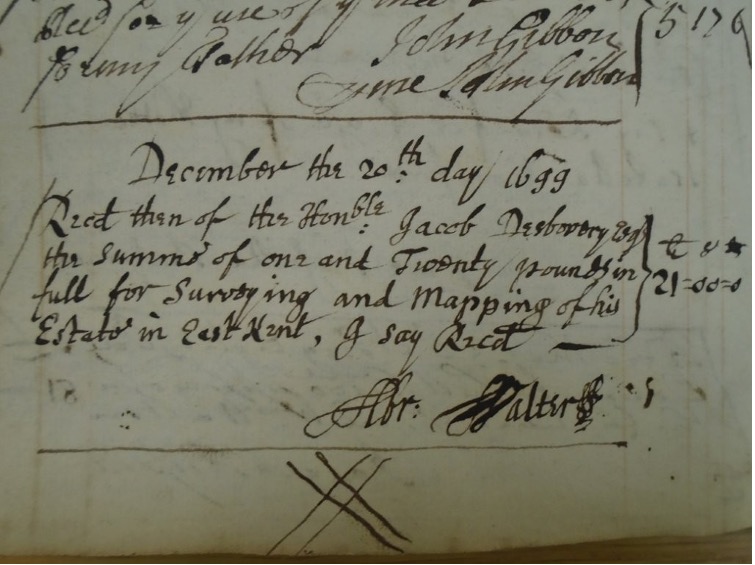 Recd for yr use of
for my Father John Gibbon 5 17 6
June John Gibbon
December the 20th day 1699
Recd then of the Honble: Jacob Desbovery Esqr
the Summe of one and Twenty pounds in £ s
full for Surveying and Mapping of his 21=00=0
Estate in East Kent, I say Recd
Abr: Walter